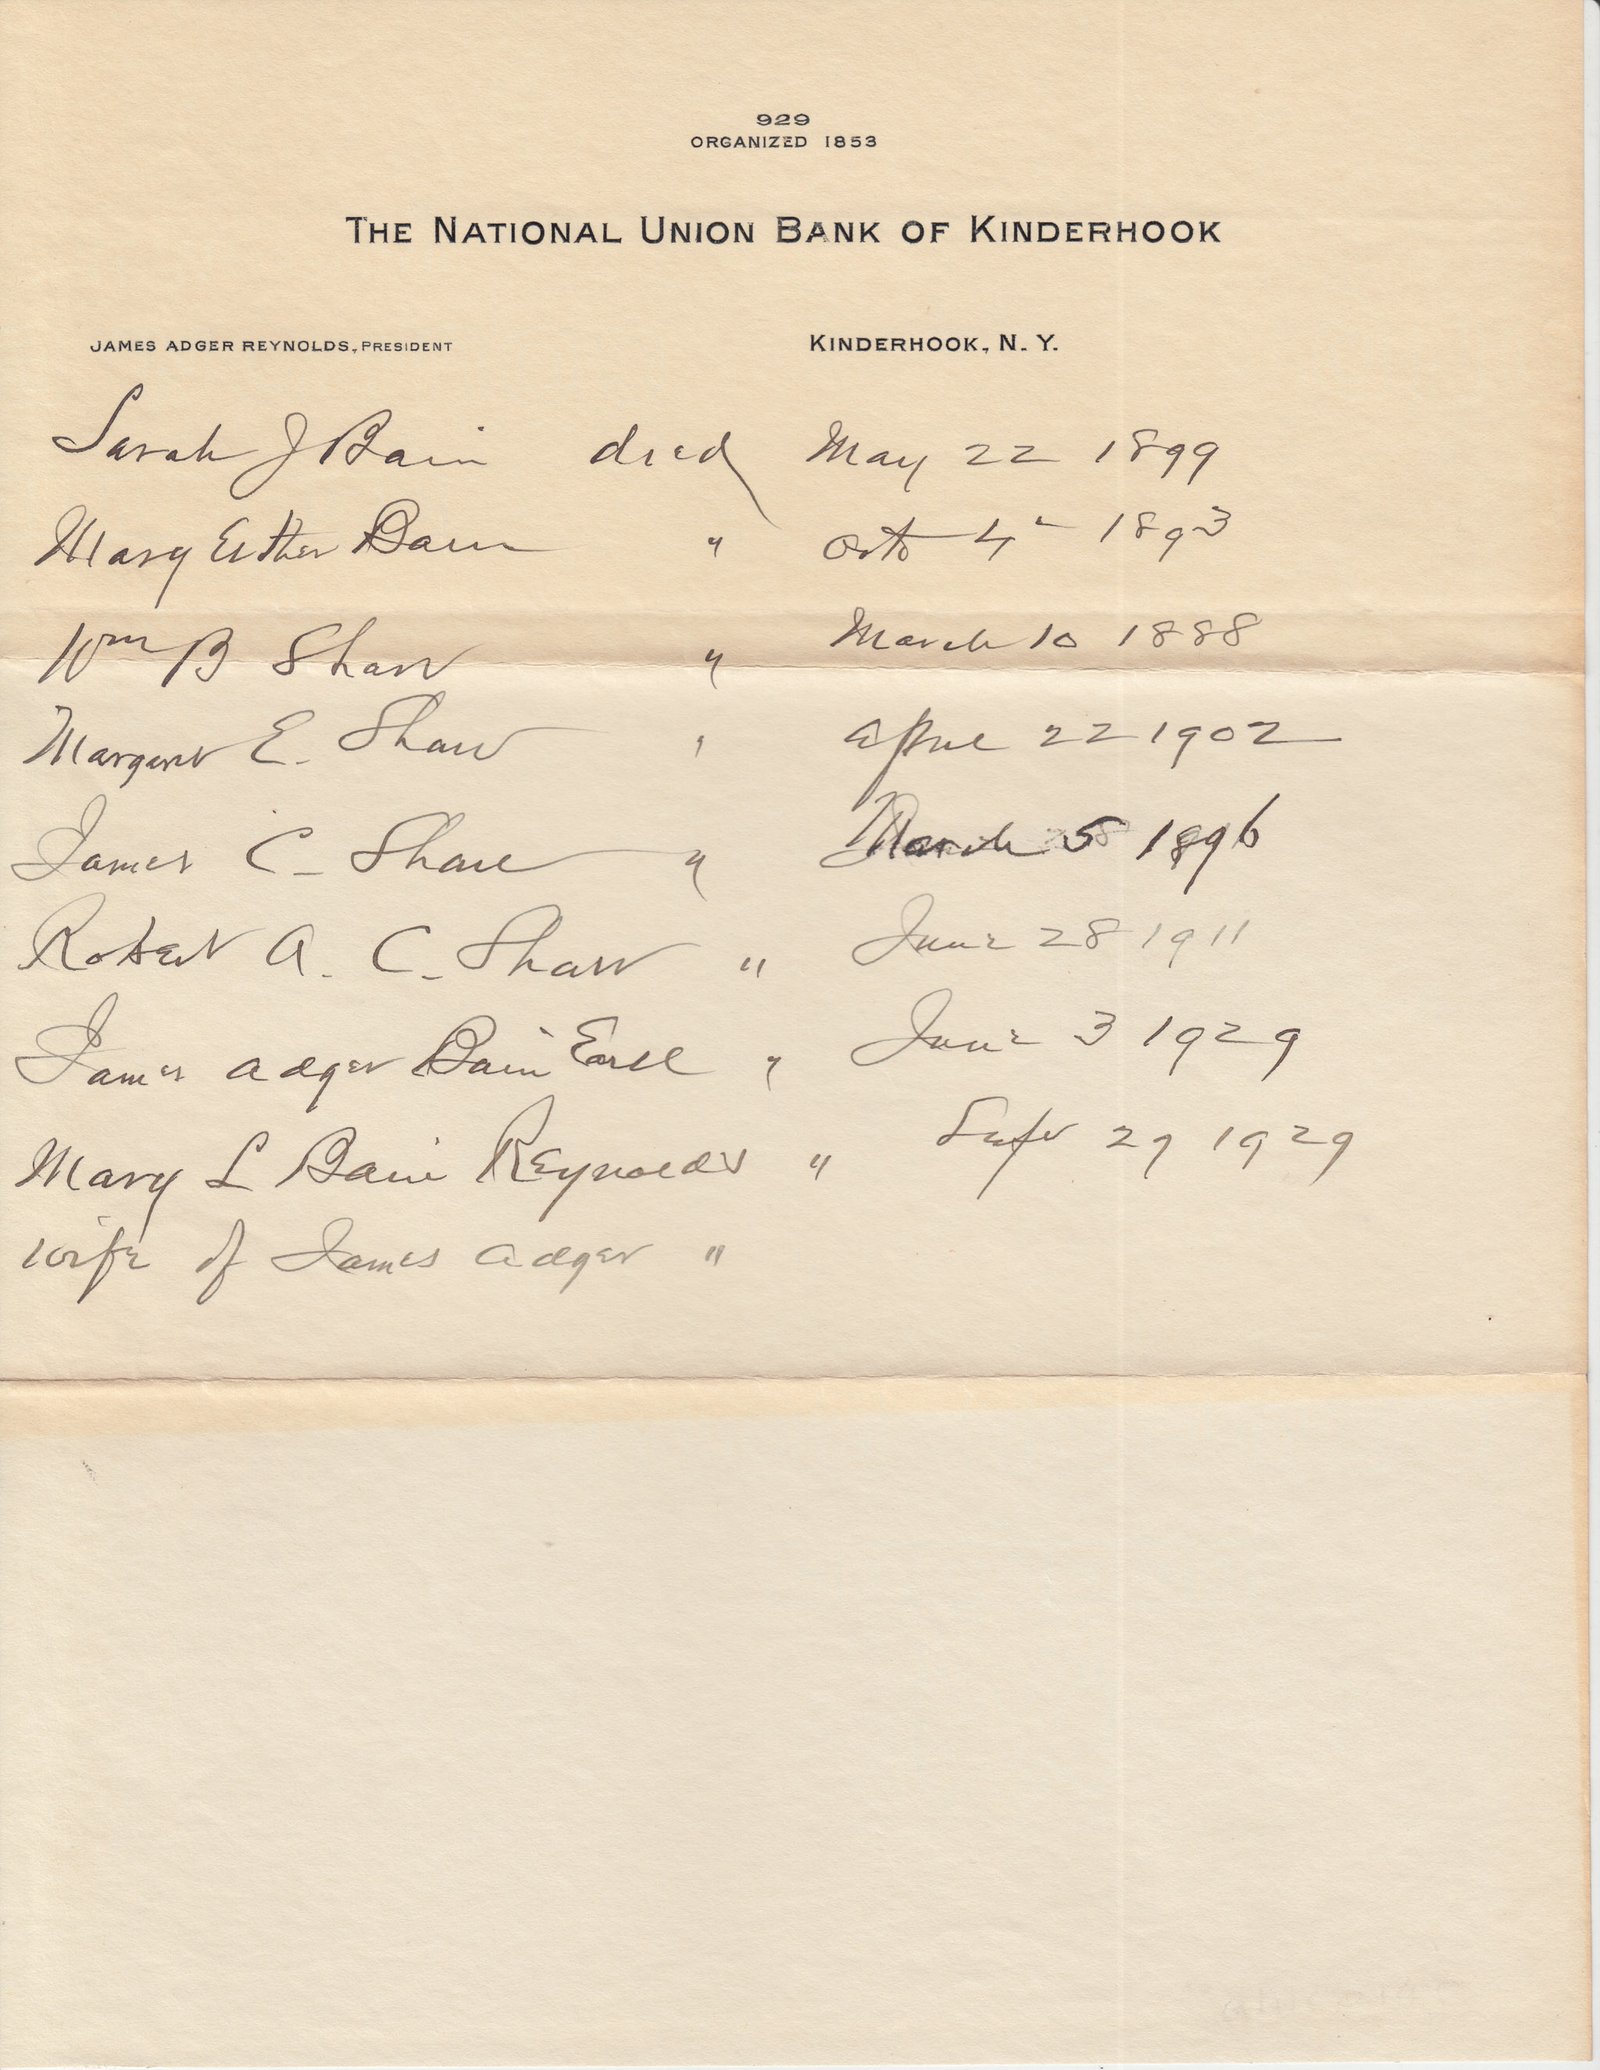 929
ORGANIZED 1853
THE NATIONAL UNION BANK OF KINDERHOOK
JAMES ADGER REYNOLDS, PRESIDENT KINDERHOOK, N. Y.
Sarah J Bain died May 22 1899
Mary Esther Bain " Octo 4th 1893
Wm B Shaw " March 10 1888
Margaret E. Shaw " April 22 1902
James C. Shaw " March 5 1896
Robert A. C. Shaw " June 28 1911
James Adger Bain Earll " June 3 1929
Mary L Bain Reynolds " Sept 29 1929
wife of James Adger "